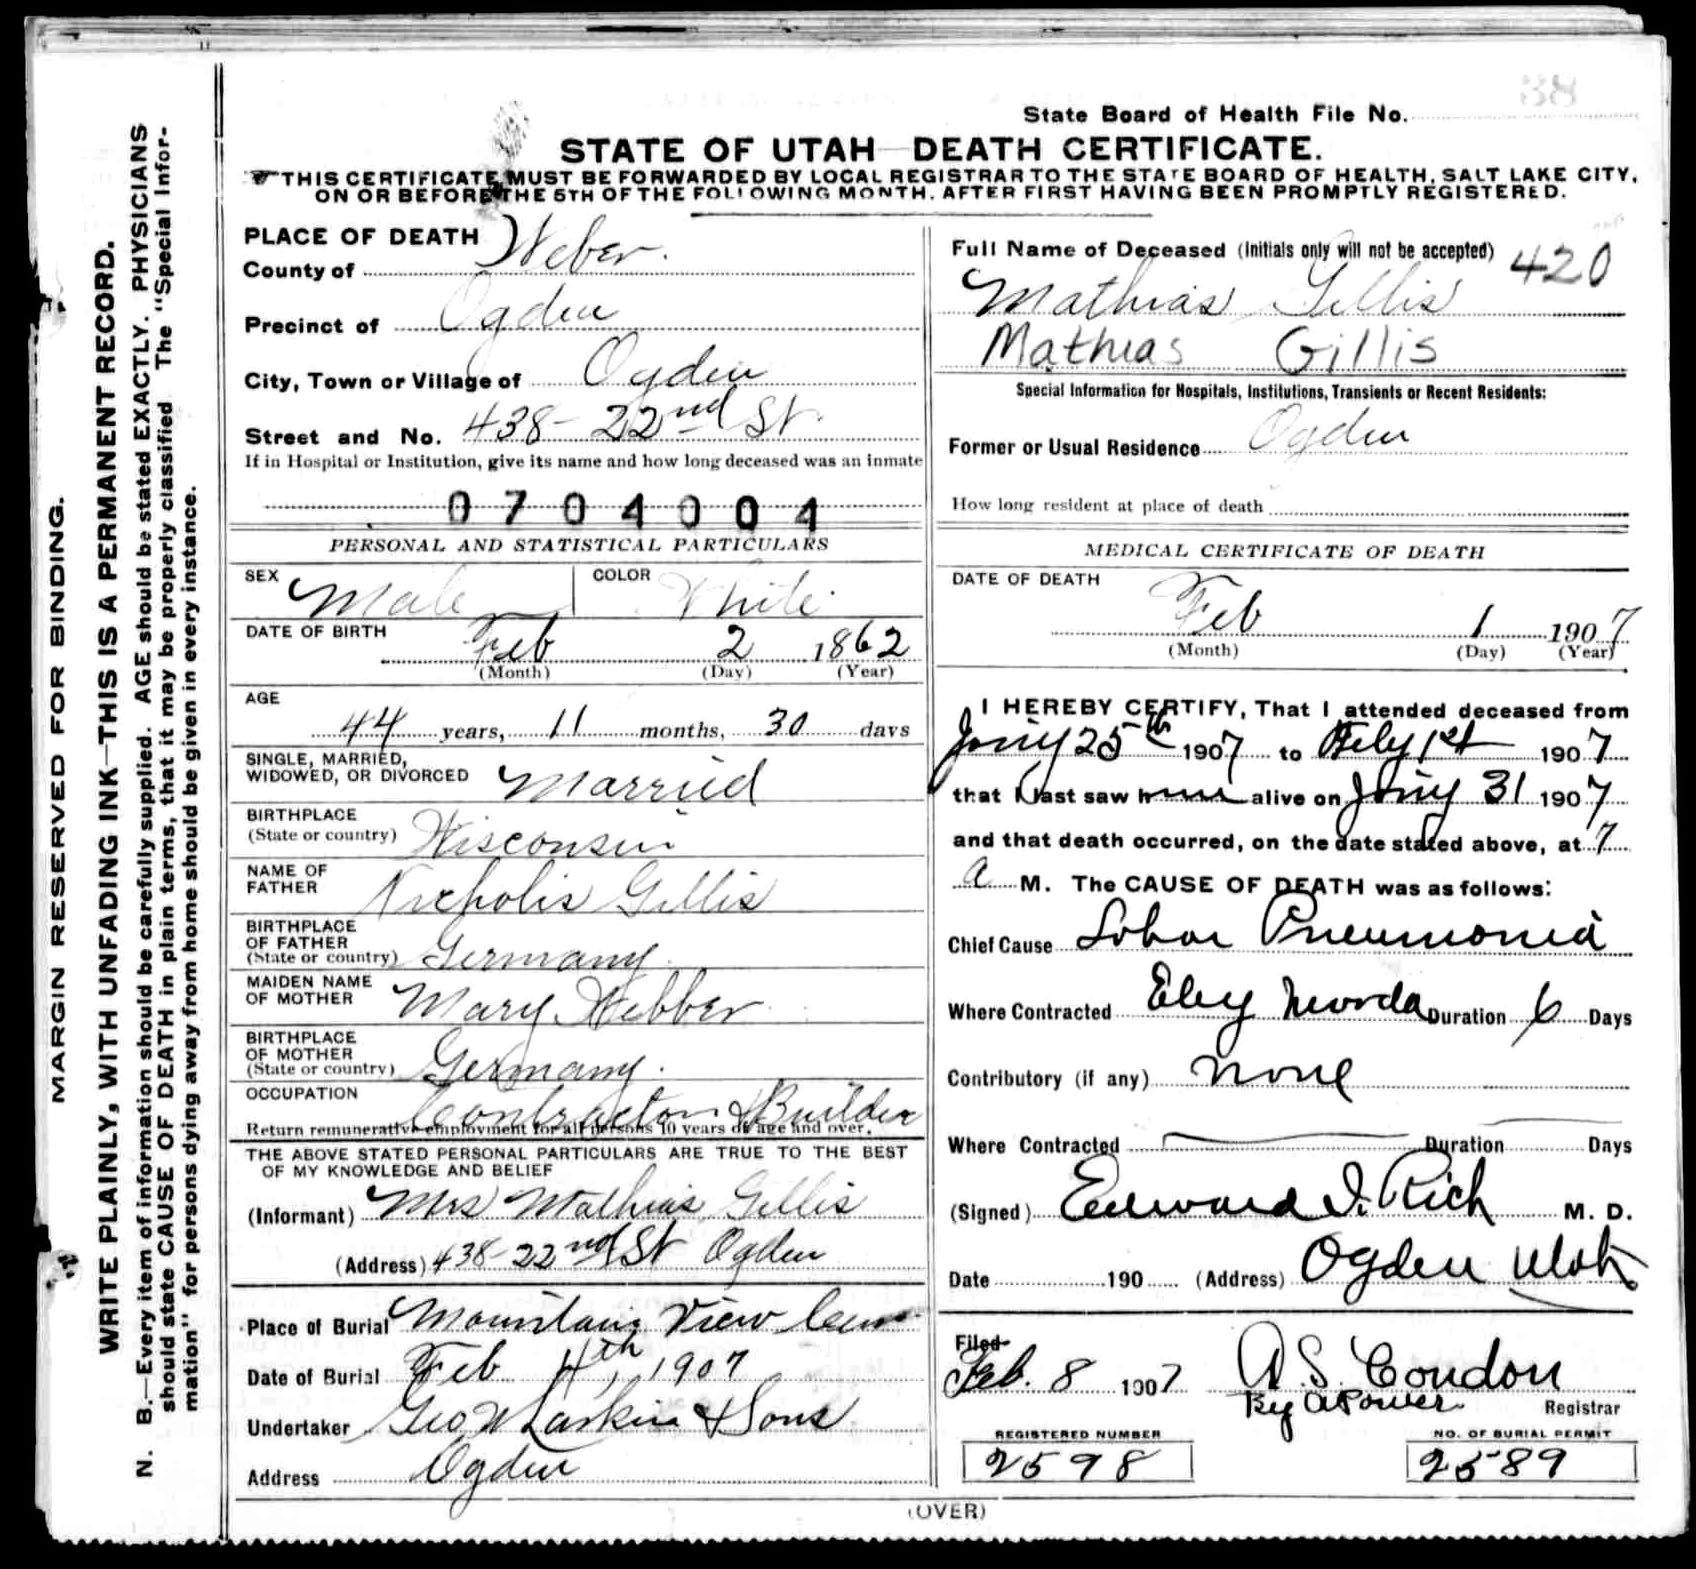 38
State Board of Health File No.
STATE OF UTAH—DEATH CERTIFICATE.
THIS CERTIFICATE MUST BE FORWARDED BY LOCAL REGISTRAR TO THE STATE BOARD OF HEALTH, SALT LAKE CITY,
ON OR BEFORE THE 5TH OF THE FOLLOWING MONTH. AFTER FIRST HAVING BEEN PROMPTLY REGISTERED.
MARGIN RESERVED FOR BINDING.
WRITE PLAINLY, WITH UNFADING INK—THIS IS A PERMANENT RECORD.
N. B.—Every item of information should be carefully supplied. AGE should be stated EXACTLY. PHYSICIANS
should state CAUSE OF DEATH in plain terms, that it may be properly classified The "Special Infor-
mation" for persons dying away from home should be given in every instance.
PLACE OF DEATH
County of Weber.
Precinct of Ogden
City, Town or Village of Ogden
Street and No. 438- 22nd St.
If in Hospital or Institution, give its name and how long deceased was an inmate
0704004
PERSONAL AND STATISTICAL PARTICULARS
SEX Male COLOR White
DATE OF BIRTH Feb 2 1862
(Month) (Day) (Year)
AGE
44 years, 11 months, 30 days
SINGLE, MARRIED,
WIDOWED, OR DIVORCED Married
BIRTHPLACE
(State or country) Wisconsin
NAME OF
FATHER Nicholis Gillis
BIRTHPLACE
OF FATHER
(State or country) Germany.
MAIDEN NAME
OF MOTHER Mary Webber
BIRTHPLACE
OF MOTHER
(State or country) Germany.
OCCUPATION
Contractor & Builder
Return remunerative employment for all persons 10 years of age and over.
THE ABOVE STATED PERSONAL PARTICULARS ARE TRUE TO THE BEST
OF MY KNOWLEDGE AND BELIEF
(Informant) Mrs Mathias Gillis
(Address) 438-22nd St Ogden
Place of Burial Mountain View Cem
Date of Burial Feb 4th, 1907
Undertaker Geo W Larkin & Sons
Address Ogden
Full Name of Deceased (Initials only will not be accepted) 420
Mathias Gillis
Mathias Gillis
Special Information for Hospitals, Institutions, Transients or Recent Residents:
Former or Usual Residence Ogden
How long resident at place of death
MEDICAL CERTIFICATE OF DEATH
DATE OF DEATH
Feb 1 1907
(Month) (Day) (Year)
I HEREBY CERTIFY, That I attended deceased from
Jany 25th 1907 to Feby 1st 1907
that I last saw him alive on Jany 31 1907
and that death occurred, on the date stated above, at 7
a M. The CAUSE OF DEATH was as follows:
Chief Cause Lobar Pneumonia
Where Contracted Eley Nevada Duration 6 Days
Contributory (if any) none
Where Contracted Duration Days
(Signed) Edward I. Rich M. D.
Date 190 (Address) Ogden Utah
Filed
Feb. 8 1907 A. S. Condon
By A Power Registrar
REGISTERED NUMBER NO. OF BURIAL PERMIT
2598 2589
(OVER)